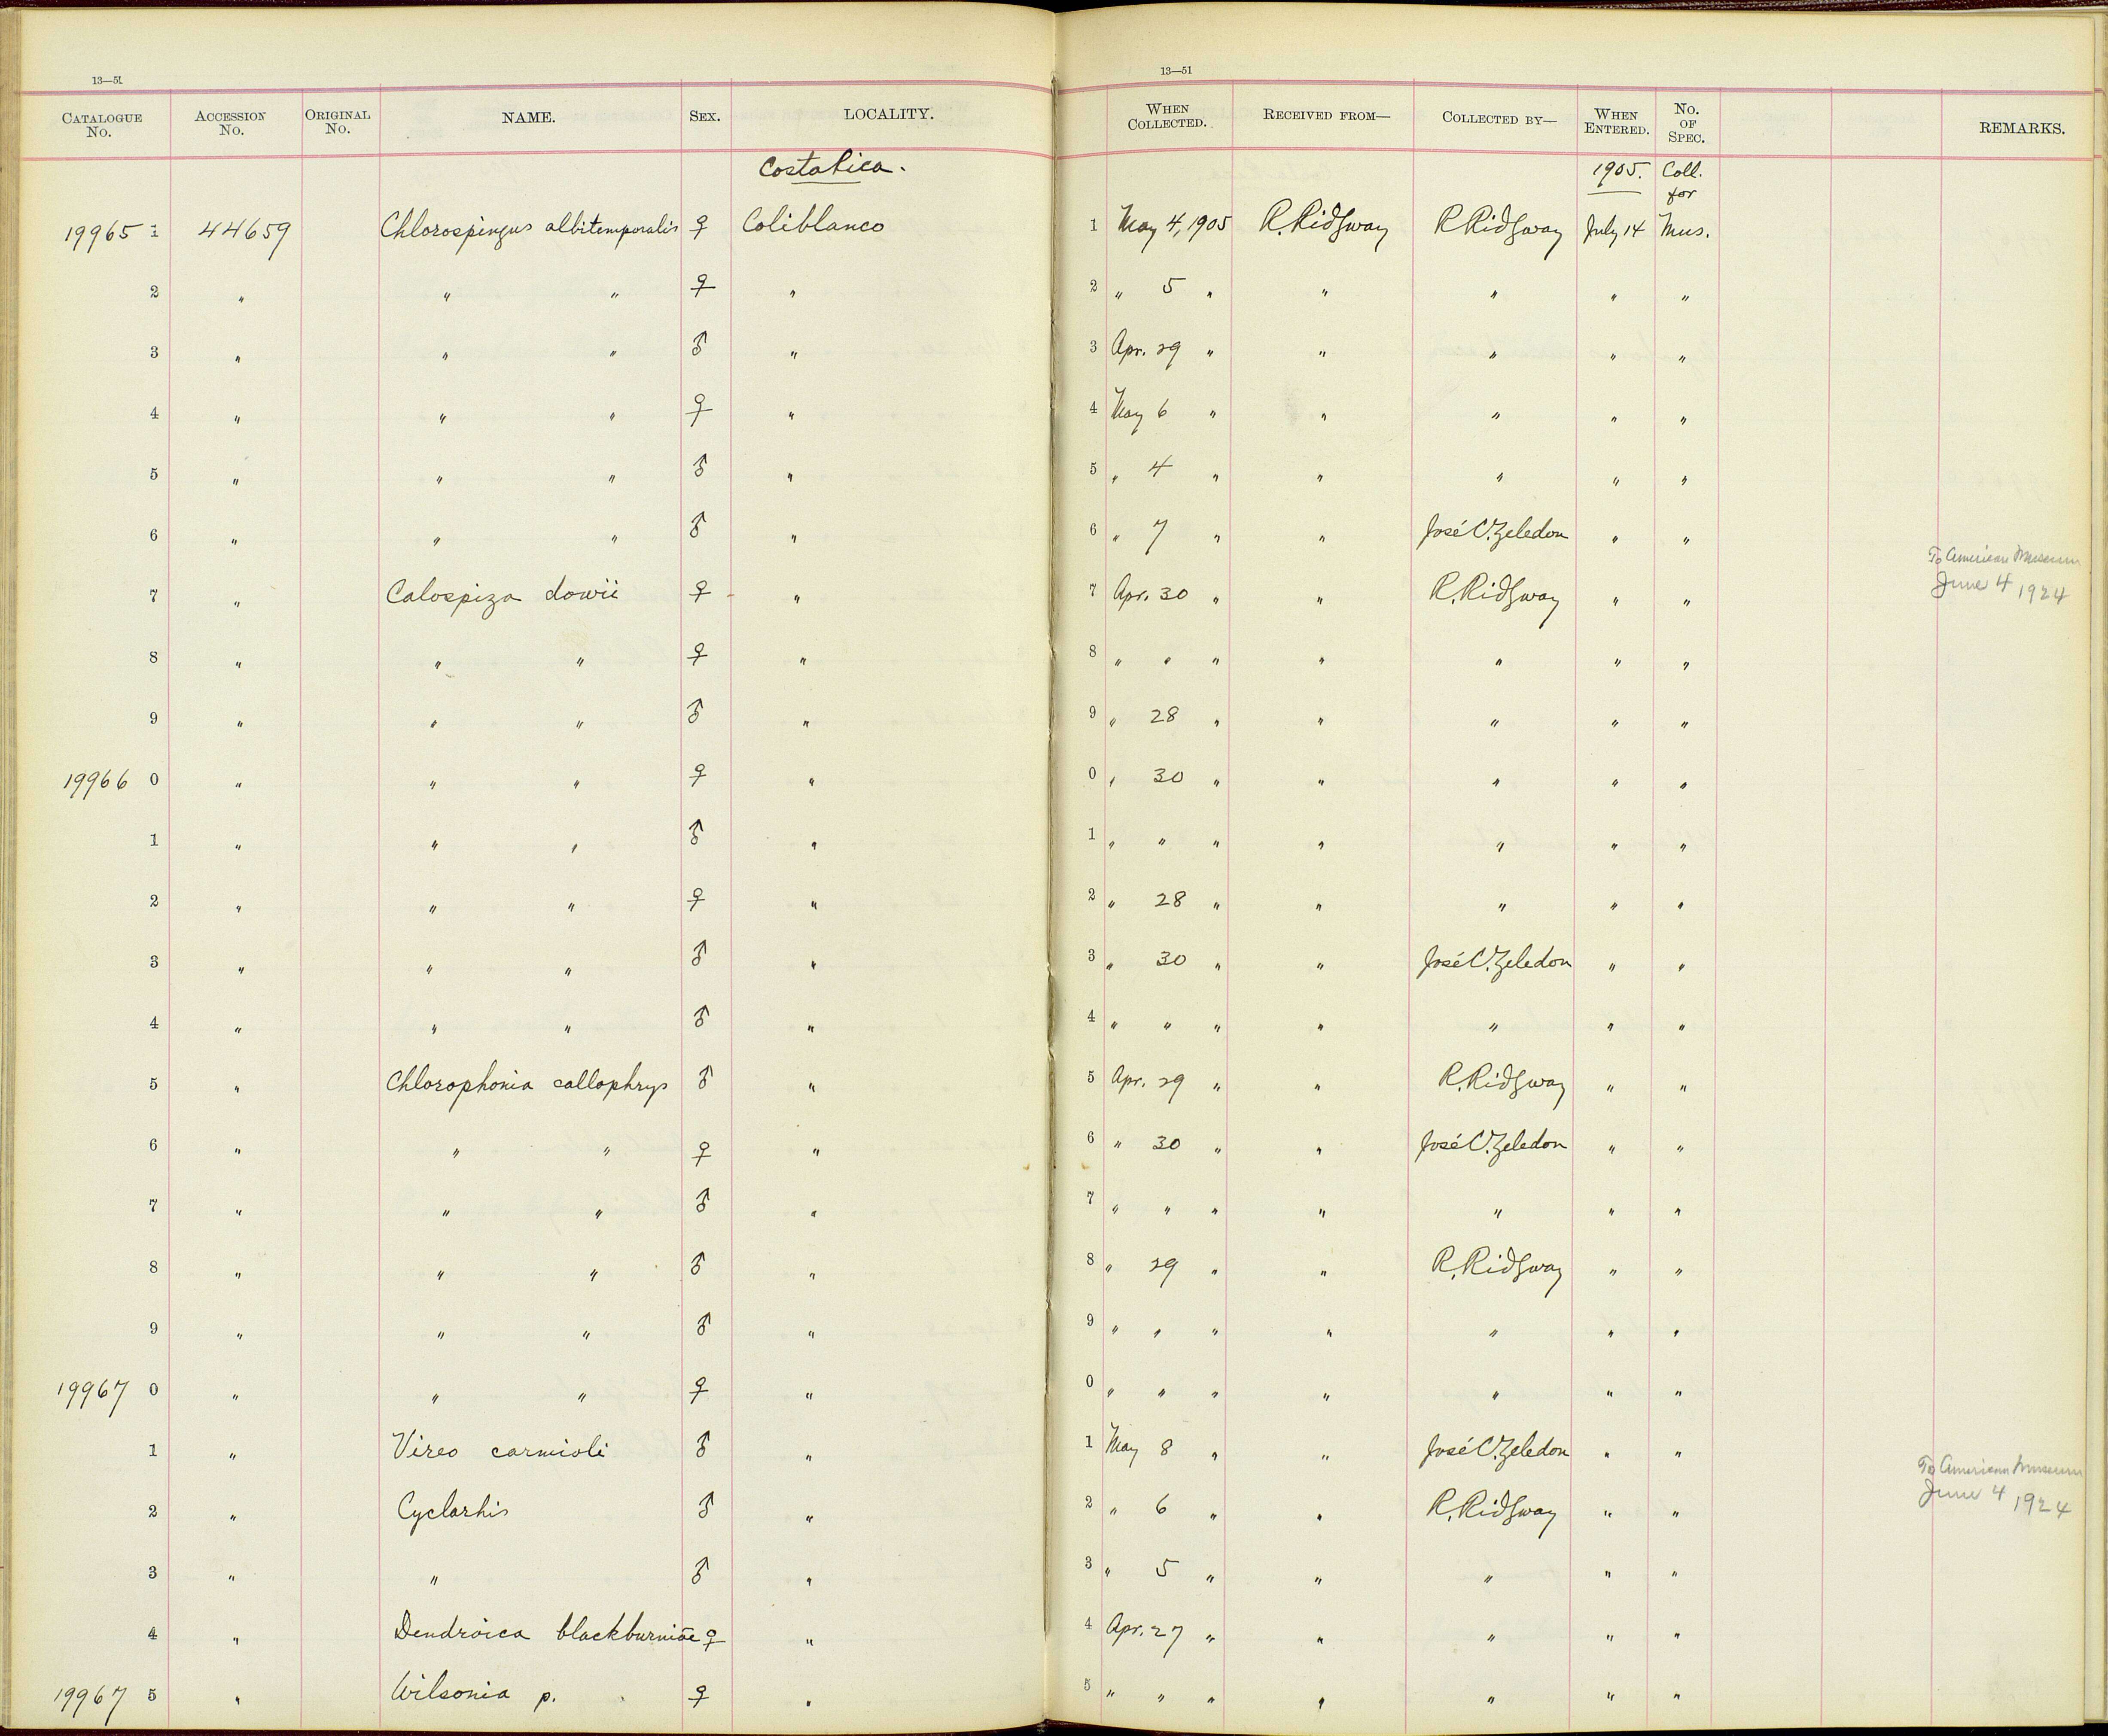 13—51
13—51
CATALOGUE No. ACCESSION No. ORIGINAL No. NAME. SEX. LOCALITY. WHEN COLLECTED. RECEIVED FROM— COLLECTED BY— WHEN ENTERED. No. OF SPEC. REMARKS.
Costa Rica. 1905. Coll. for
19965 1 44659 Chlorospingus albitemporalis ♀ Coliblanco 1 May 4, 1905 R. Ridgway R. Ridgway July 14 Mus.
2 " " " ♀ " 2 " 5 " " " " "
3 " " " ♂ " 3 Apr. 29 " " " " "
4 " " " ♀ " 4 May 6 " " " " "
5 " " " ♂ " 5 " 4 " " " " "
6 " " " ♂ " 6 " 7 " " José C. Zeledon " "
7 " Calospiza dowii ♀ " 7 Apr. 30 " " R. Ridgway " " To American Museum June 4 1924
8 " " " ♀ " 8 " " " " " " "
9 " " " ♂ " 9 " 28 " " " " "
19966 0 " " " ♀ " 0 " 30 " " " " "
1 " " " ♂ " 1 " " " " " " "
2 " " " ♀ " 2 " 28 " " " " "
3 " " " ♂ " 3 " 30 " " José C. Zeledon " "
4 " " " ♂ " 4 " " " " " " "
5 " Chlorophonia callophrys ♂ " 5 Apr. 29 " " R. Ridgway " "
6 " " " ♀ " 6 " 30 " " José C. Zeledon " "
7 " " " ♂ " 7 " " " " " " "
8 " " " ♂ " 8 " 29 " " R. Ridgway " "
9 " " " ♂ " 9 " " " " " " "
19967 0 " " " ♀ " 0 " " " " " " "
1 " Vireo carmioli ♂ " 1 May 8 " " José C. Zeledon " " To American Museum June 4 1924
2 " Cyclarhis ♂ " 2 " 6 " " R. Ridgway " "
3 " " ♂ " 3 " 5 " " " " "
4 " Dendroica blackburniae ♀ " 4 Apr. 27 " " " " "
19967 5 " Wilsonia p. ♀ " 5 " " " " " " "